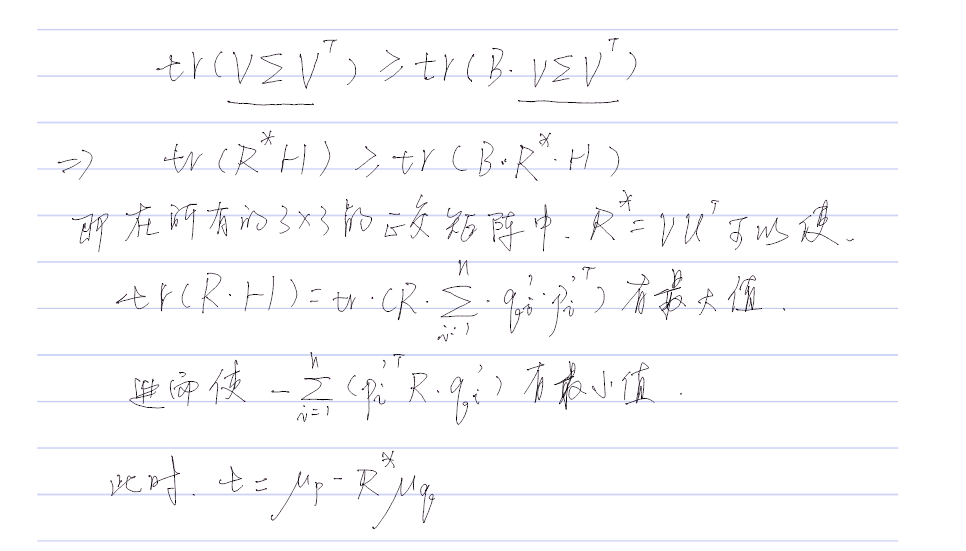 tr(VΣV^T) ≥ tr(B·VΣV^T)
⇒ tr(R^*H) ≥ tr(B·R^*·H)
即在所有的3×3的正交矩阵中. R^*=VU^T可以使.
tr(R·H)=tr·(R·∑_{i=1}^{n}·q_i'·p_i'^T)有最大值.
进而使 -∑_{i=1}^{n}(p_i'^T R·q_i')有最小值.
此时. t=μ_p-R^*μ_q